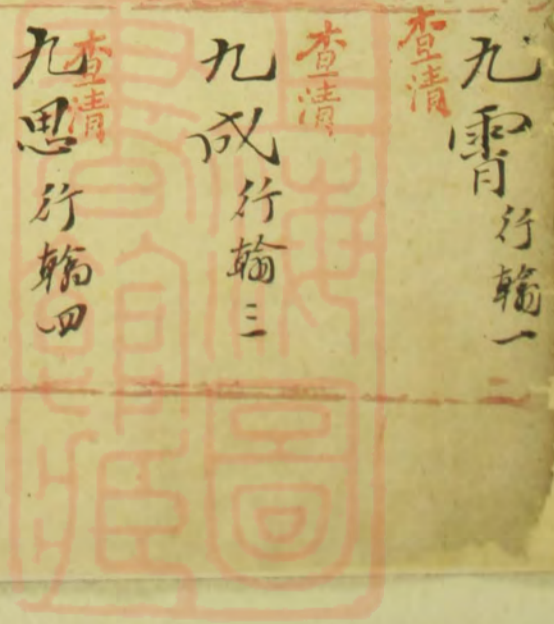 查清
九霄行翰一
查清
九成行翰三
查清
九思行翰四